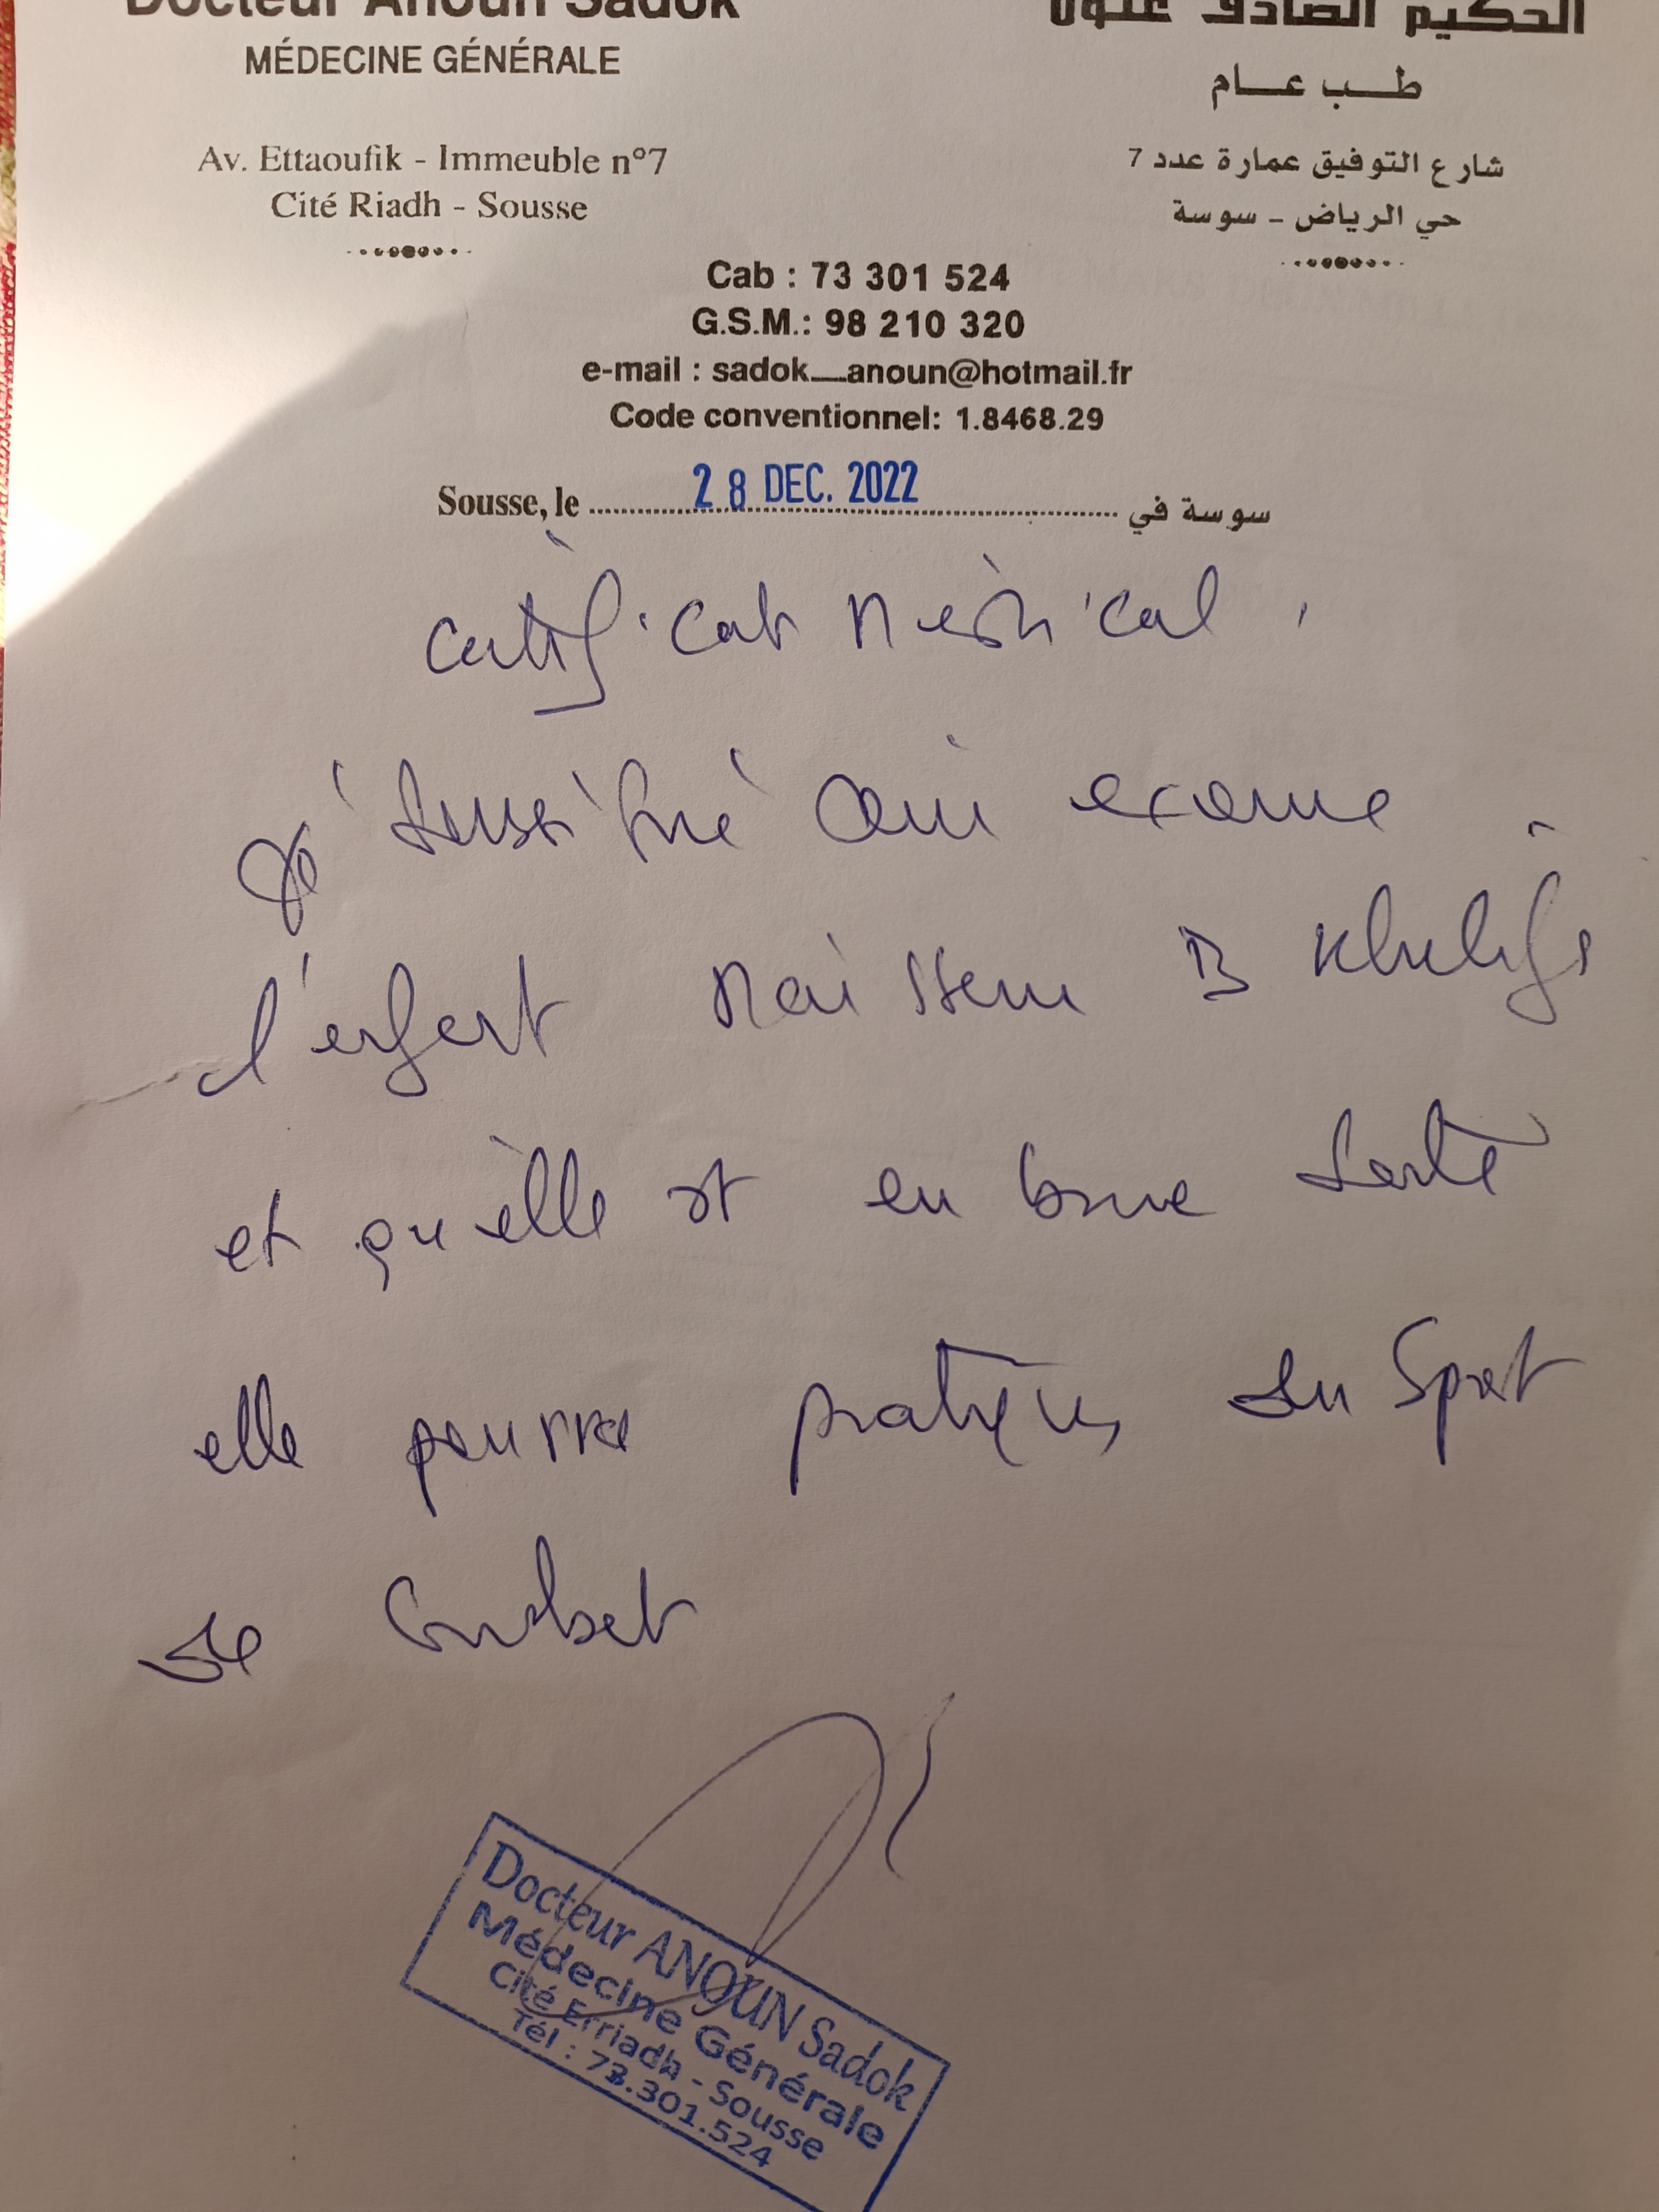 Docteur Anoun Sadok
الحكيم الصادق عنون
MÉDECINE GÉNÉRALE
طب عام
Av. Ettaoufik - Immeuble n°7
شارع التوفيق عمارة عدد 7
Cité Riadh - Sousse
حي الرياض - سوسة
Cab : 73 301 524
G.S.M.: 98 210 320
e-mail : sadok_anoun@hotmail.fr
Code conventionnel: 1.8468.29
Sousse, le 28 DEC. 2022 سوسة في
Certificat Médical
Je soussigné avoir examiné
l'enfant B Khelifa
et qu'elle est en bonne santé
elle pourra pratiquer du Sport
de Combat
Docteur ANOUN Sadok
Médecine Générale
Cité Erriadh - Sousse
Tél : 73.301.524